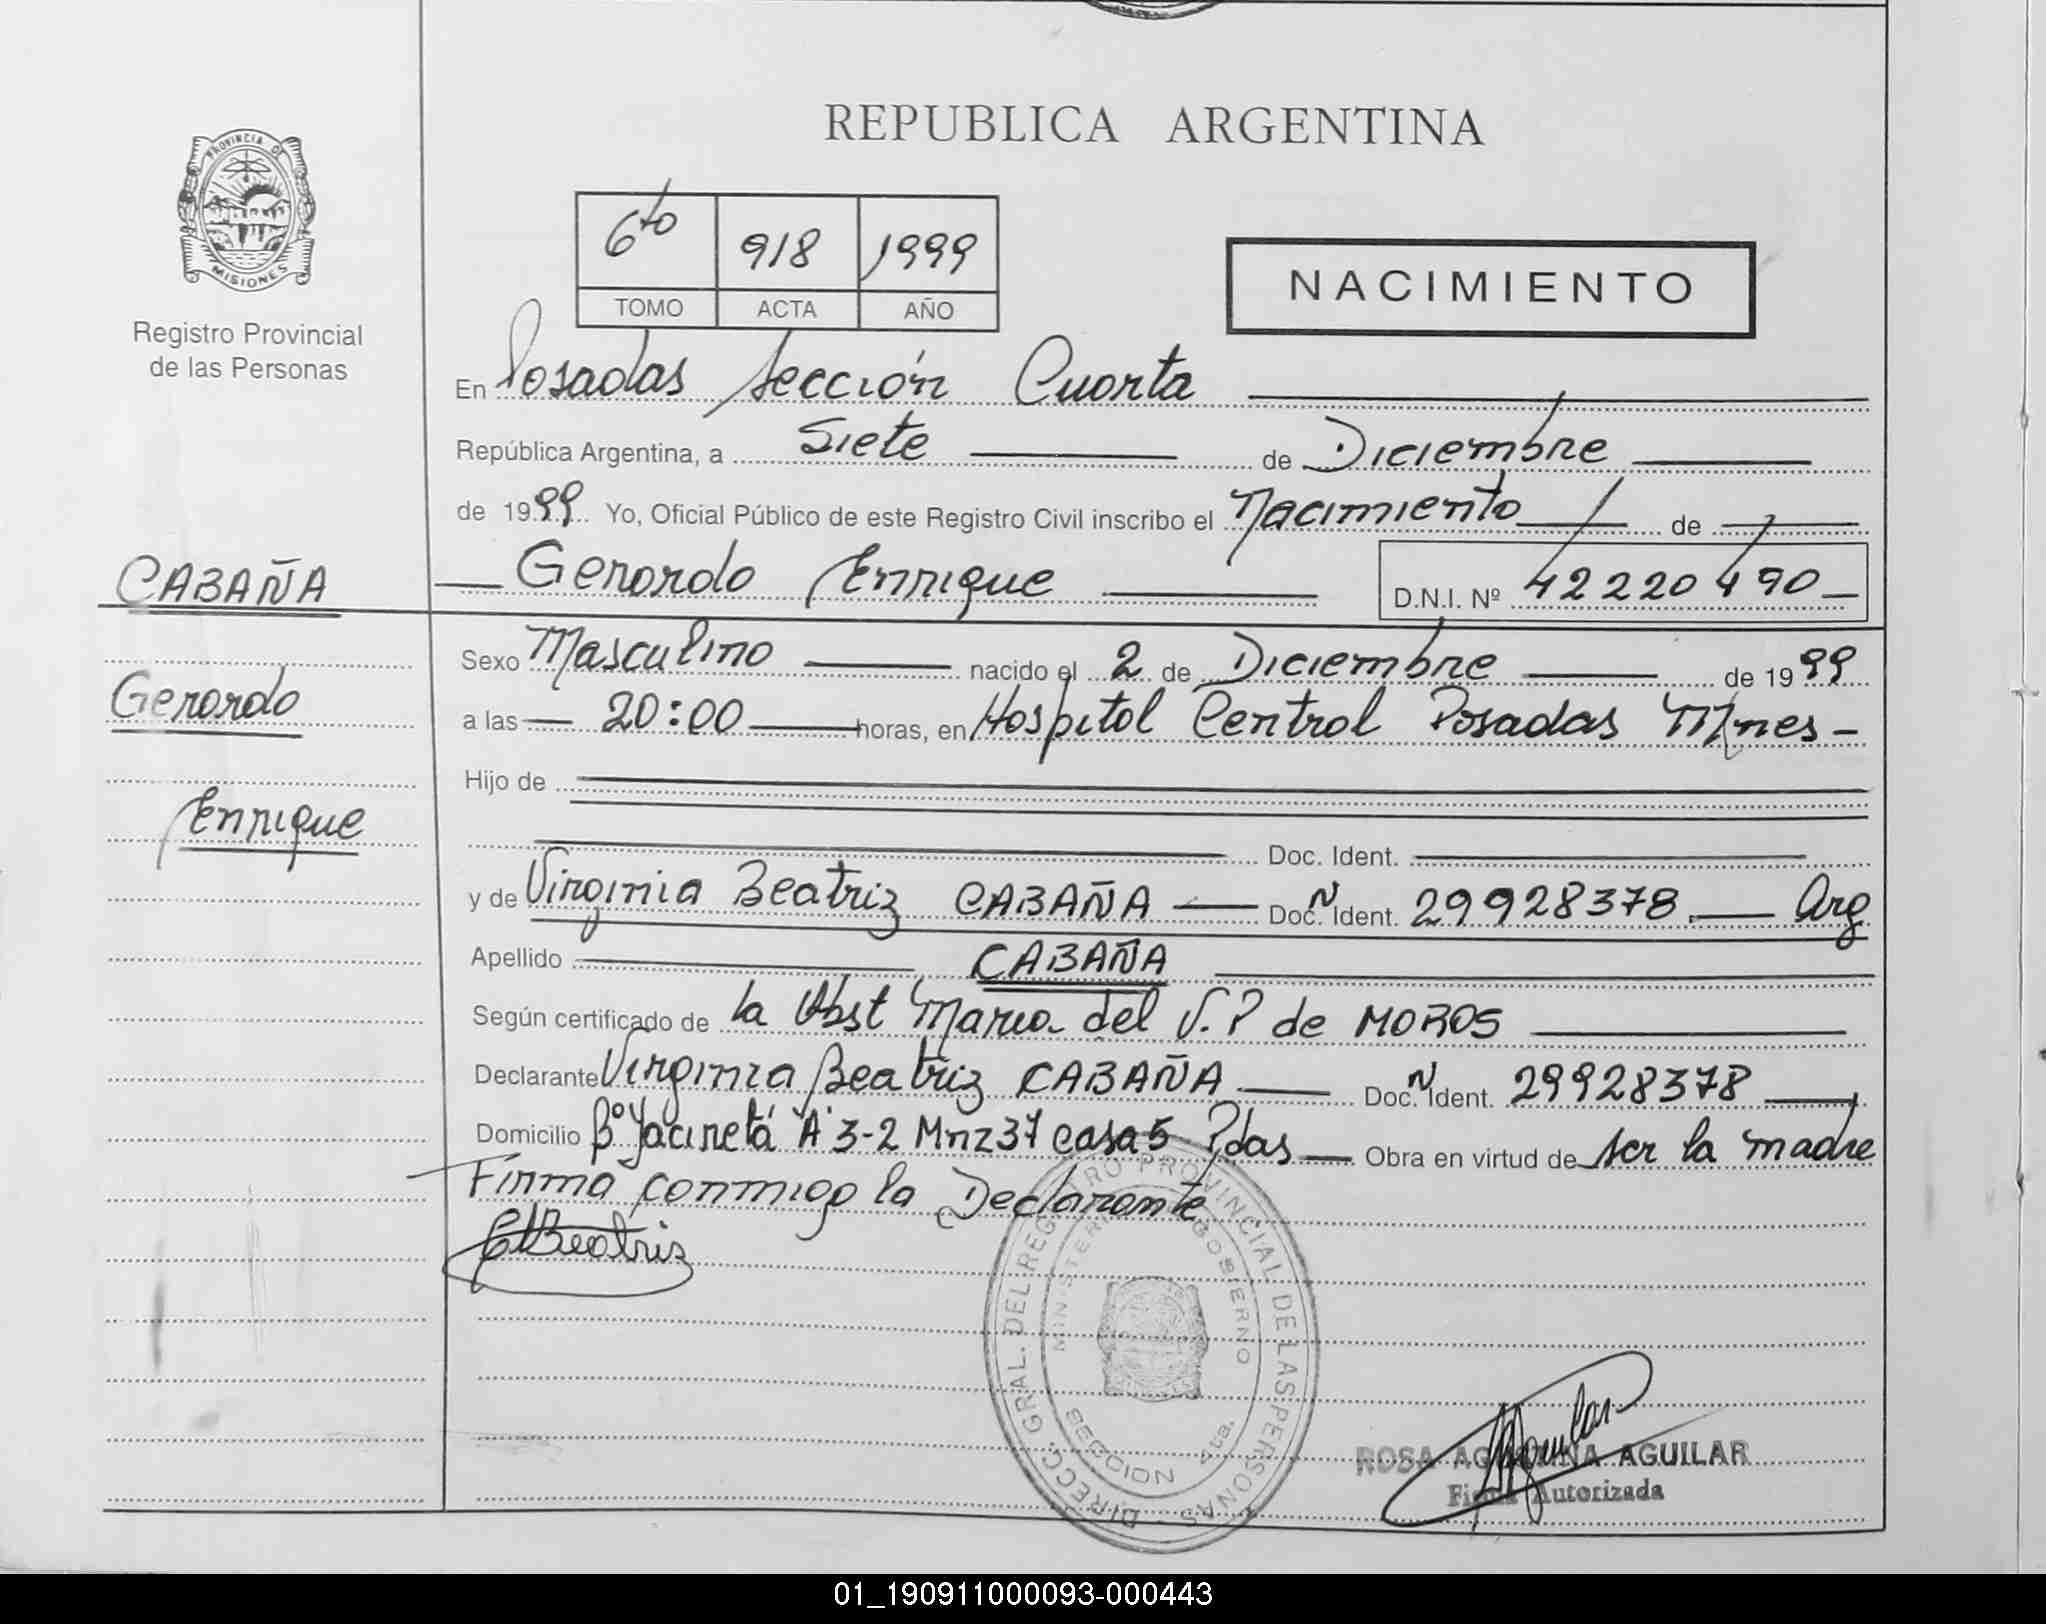 REPUBLICA ARGENTINA
PROVINCIA DE
MISIONES
Registro Provincial
de las Personas
6to 918 1999
TOMO ACTA AÑO
NACIMIENTO
En Posadas Sección Cuarta
República Argentina, a Siete de Diciembre
de 1999 Yo, Oficial Público de este Registro Civil inscribo el Nacimiento de
CABAÑA
Gerardo Enrique D.N.I. Nº 42220490
Sexo Masculino nacido el 2 de Diciembre de 1999
Gerardo
a las 20:00 horas, en Hospital Central Posadas Mnes
Hijo de
Enrique
Doc. Ident.
y de Virginia Beatriz CABAÑA Doc. N Ident. 29928378 Arg
Apellido CABAÑA
Según certificado de la Obst Maria del V.P de MOROS
Declarante Virginia Beatriz CABAÑA Doc. N Ident. 29928378
Domicilio Bº Yaciretá "A" 3-2 Mnz 37 casa 5 Pdas Obra en virtud de ser la madre
Firma conmigo la Declarante
CBeatriz
DIRECC. GRAL. DEL REGISTRO PROVINCIAL DE LAS PERSONAS
MINISTERIO GOBIERNO
SECCION 4ta.
ROSA AGUSTINA AGUILAR
Firma Autorizada
01_190911000093-000443